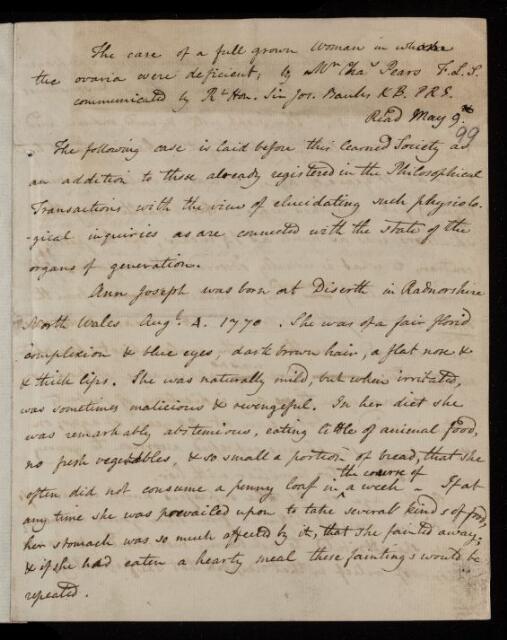 The case of a full grown Woman in whom
the ovaria were deficient; by Mr Chas Pears F.L.S.
communicated by Rt Hon. Sir Jos. Banks K.B. P.R.S.
Read May 9.th
99
The following case is laid before this learned Society as
an addition to those already registered in the Philosophical
Transactions with the view of elucidating such physiolo-
-gical inquiries as are connected with the state of the
organs of generation.
Ann Joseph was born at Diserth in Radnorshire
North Wales Augt. 4. 1770. She was of a fair florid
complexion & blue eyes, dark brown hair, a flat nose &
& thick lips. She was naturally mild, but when irritated,
was sometimes malicious & revengeful. In her diet she
was remarkably abstemious, eating little of animal food,
no fresh vegetables, & so small a portion of bread, that she
often did not consume a penny loaf in the course of a week - If at
any time she was prevailed upon to take several kinds of food,
her stomach was so much affected by it, that she fainted away;
& if she had eaten a hearty meal these faintings would be
repeated.